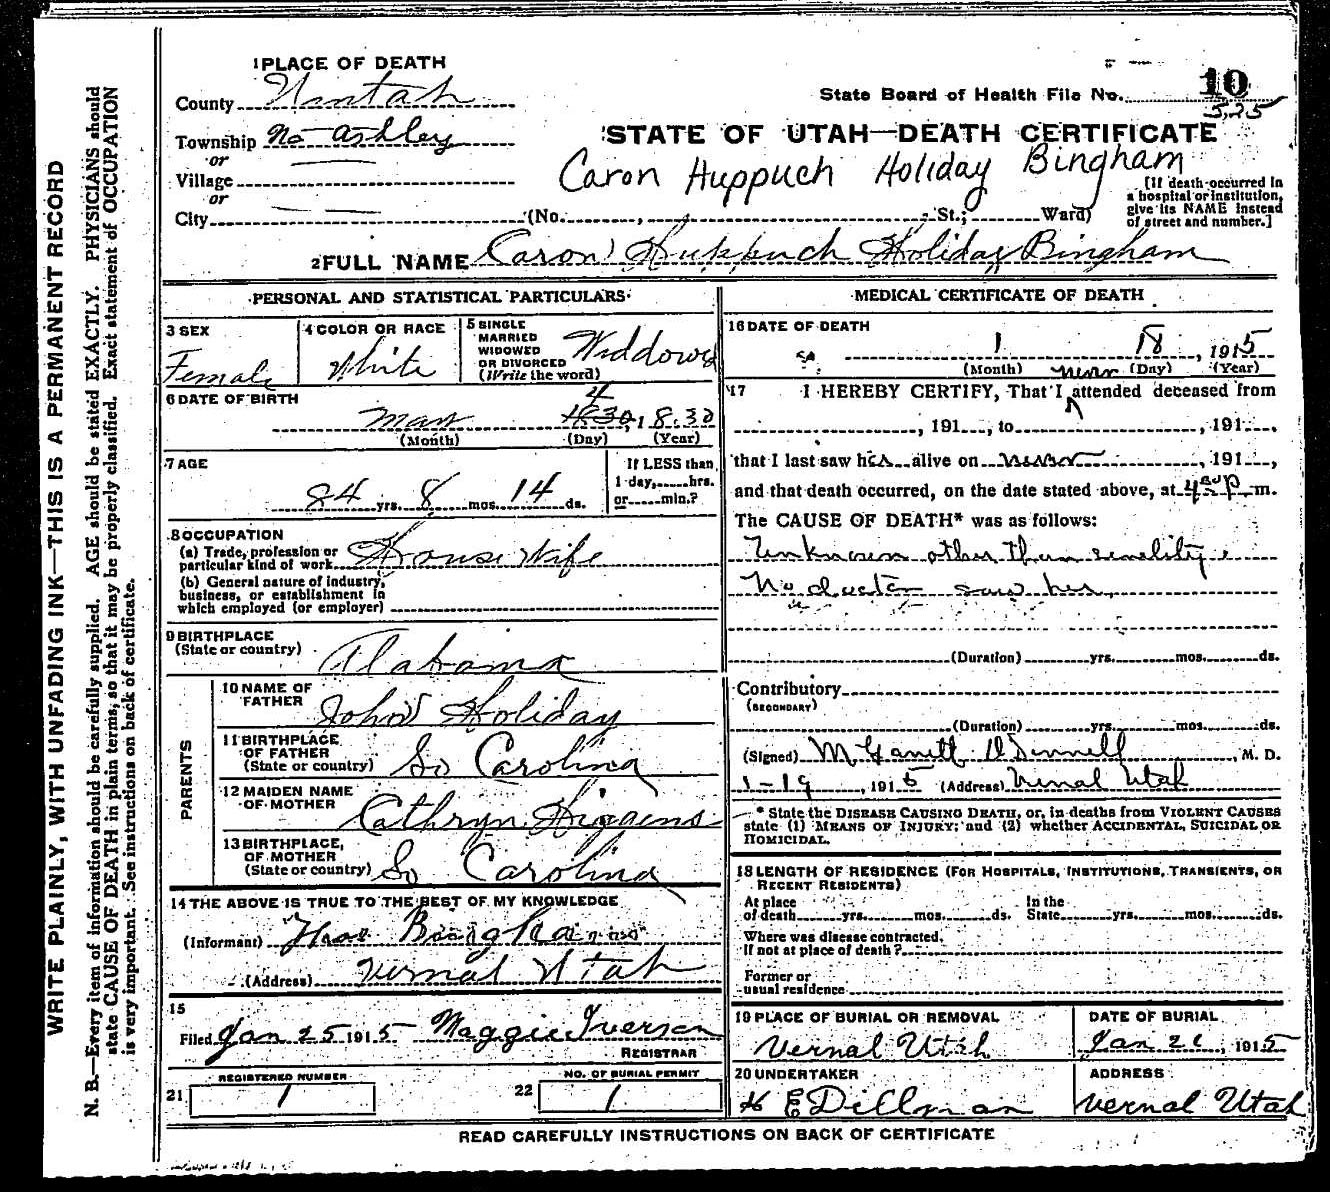 1 PLACE OF DEATH
County Uintah
State Board of Health File No. 10
525
Township No Ashley
STATE OF UTAH—DEATH CERTIFICATE
or
Village
Caron Huppuch Holiday Bingham
or
City (No. , St.; Ward)
[If death occurred in
a hospital or institution,
give its NAME instead
of street and number.]
2 FULL NAME Caron Huppuch Holiday Bingham
PERSONAL AND STATISTICAL PARTICULARS
3 SEX
Female
4 COLOR OR RACE
White
5 SINGLE
MARRIED
WIDOWED
OR DIVORCED
(Write the word)
Widdowd
6 DATE OF BIRTH
May 4 1830, 1830
(Month) (Day) (Year)
7 AGE
84 yrs. 8 mos. 14 ds.
If LESS than
1 day, hrs.
or min.?
8 OCCUPATION
(a) Trade, profession or
particular kind of work House Wife
(b) General nature of industry,
business, or establishment in
which employed (or employer)
9 BIRTHPLACE
(State or country) Alabama
PARENTS
10 NAME OF
FATHER John Holiday
11 BIRTHPLACE
OF FATHER
(State or country) So Carolina
12 MAIDEN NAME
OF MOTHER Cathryn Higgens
13 BIRTHPLACE,
OF MOTHER
(State or country) So Carolina
14 THE ABOVE IS TRUE TO THE BEST OF MY KNOWLEDGE
(Informant) Thos Bingham
(Address) Vernal Utah
15
Filed Jan 25 1915 Maggie Iverson
REGISTRAR
21 REGISTERED NUMBER
1
22 NO. OF BURIAL PERMIT
1
MEDICAL CERTIFICATE OF DEATH
16 DATE OF DEATH
1 18, 1915
(Month) (Day) (Year)
never
17 I HEREBY CERTIFY, That I attended deceased from
, 191 , to , 191 ,
that I last saw her alive on never , 191 ,
and that death occurred, on the date stated above, at 4 30 P m.
The CAUSE OF DEATH* was as follows:
Unknown other than senility
No doctor saw her
(Duration) yrs. mos. ds.
Contributory
(SECONDARY)
(Duration) yrs. mos. ds.
(Signed) , M. D.
1-19, 1915 (Address) Vernal Utah
* State the DISEASE CAUSING DEATH, or, in deaths from VIOLENT CAUSES
state (1) MEANS OF INJURY; and (2) whether ACCIDENTAL, SUICIDAL OR
HOMICIDAL.
18 LENGTH OF RESIDENCE (FOR HOSPITALS, INSTITUTIONS, TRANSIENTS, OR
RECENT RESIDENTS)
At place
of death yrs. mos. ds.
In the
State yrs. mos. ds.
Where was disease contracted,
If not at place of death?
Former or
usual residence
19 PLACE OF BURIAL OR REMOVAL
Vernal Utah
DATE OF BURIAL
Jan 21, 1915
20 UNDERTAKER
E Dillman
ADDRESS
Vernal Utah
READ CAREFULLY INSTRUCTIONS ON BACK OF CERTIFICATE
WRITE PLAINLY, WITH UNFADING INK—THIS IS A PERMANENT RECORD
N. B.—Every item of information should be carefully supplied. AGE should be stated EXACTLY. PHYSICIANS should
state CAUSE OF DEATH in plain terms, so that it may be properly classified. Exact statement of OCCUPATION
is very important. See instructions on back of certificate.